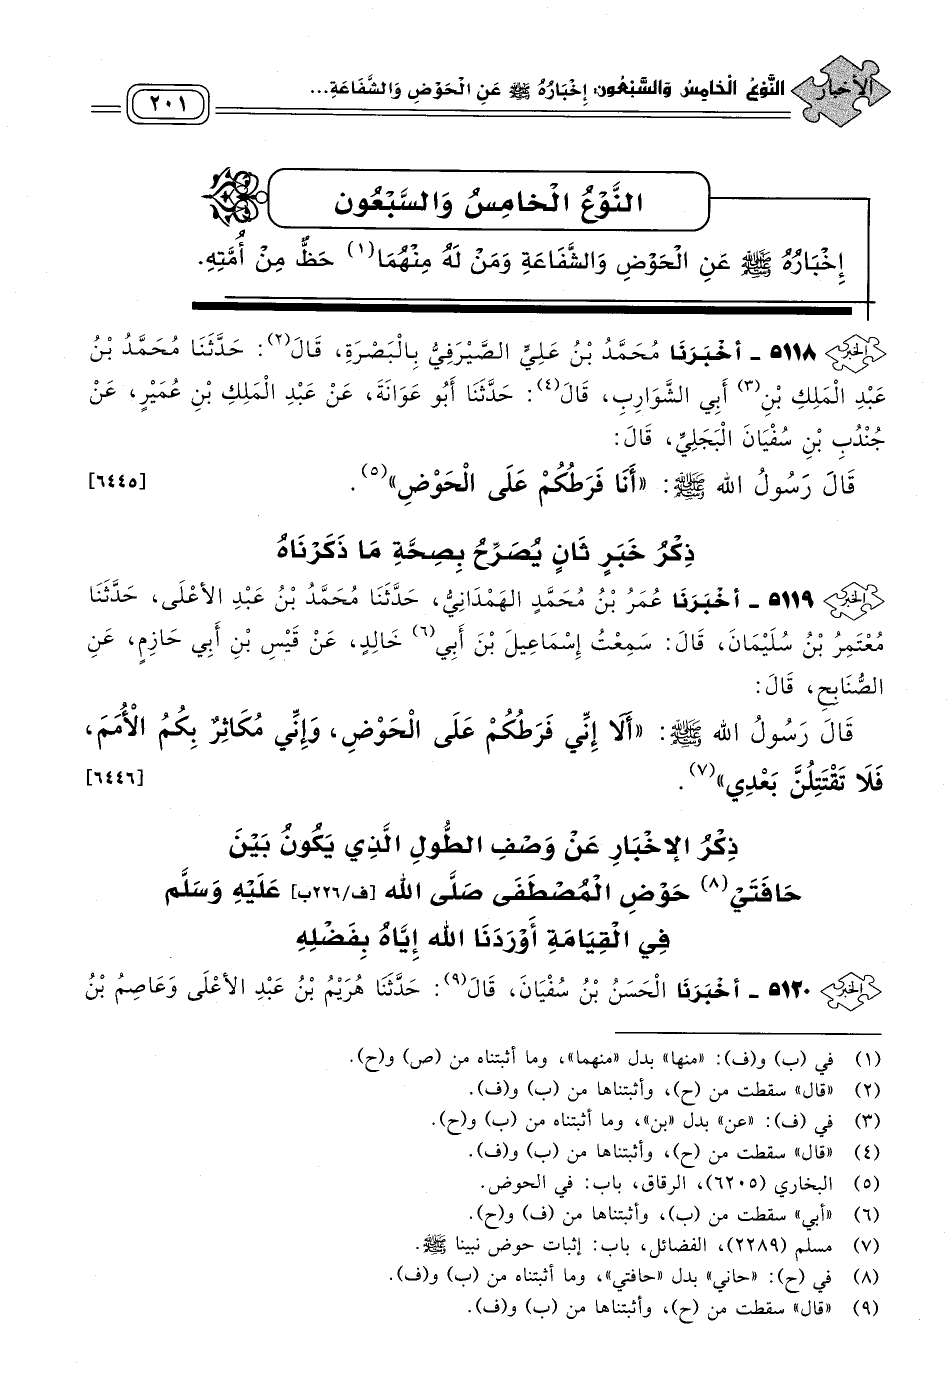 الأخبار
النَّوْعُ الْخَامِسُ وَالسَّبْعُونَ: إخْبَارُهُ ﷺ عَنِ الْحَوْضِ وَالشَّفَاعَةِ...
٢٠١
النَّوْعُ الْخَامِسُ وَالسَّبْعُونَ
إِخْبَارُهُ ﷺ عَنِ الْحَوْضِ وَالشَّفَاعَةِ وَمَنْ لَهُ مِنْهُمَا(١) حَظٌّ مِنْ أُمَّتِهِ.
٥١١٨ - أَخْبَرَنَا مُحَمَّدُ بْنُ عَلِيٍّ الصَّيْرَفِيُّ بِالْبَصْرَةِ، قَالَ(٢): حَدَّثَنَا مُحَمَّدُ بْنُ
عَبْدِ الْمَلِكِ بْنِ(٣) أَبِي الشَّوَارِبِ، قَالَ(٤): حَدَّثَنَا أَبُو عَوَانَةَ، عَنْ عَبْدِ الْمَلِكِ بْنِ عُمَيْرٍ، عَنْ
جُنْدُبِ بْنِ سُفْيَانَ الْبَجَلِيِّ، قَالَ:
قَالَ رَسُولُ الله ﷺ: «أَنَا فَرَطُكُمْ عَلَى الْحَوْضِ»(٥). [٦٤٤٥]
ذِكْرُ خَبَرٍ ثَانٍ يُصَرِّحُ بِصِحَّةِ مَا ذَكَرْنَاهُ
٥١١٩ - أَخْبَرَنَا عُمَرُ بْنُ مُحَمَّدٍ الهَمْدَانِيُّ، حَدَّثَنَا مُحَمَّدُ بْنُ عَبْدِ الأعْلَى، حَدَّثَنَا
مُعْتَمِرُ بْنُ سُلَيْمَانَ، قَالَ: سَمِعْتُ إِسْمَاعِيلَ بْنَ أَبِي(٦) خَالِدٍ، عَنْ قَيْسِ بْنِ أَبِي حَازِمٍ، عَنِ
الصُّنَابِحِ، قَالَ:
قَالَ رَسُولُ الله ﷺ: «أَلَا إِنِّي فَرَطُكُمْ عَلَى الْحَوْضِ، وَإِنِّي مُكَاثِرٌ بِكُمُ الْأُمَمَ،
فَلَا تَقْتَتِلُنَّ بَعْدِي»(٧). [٦٤٤٦]
ذِكْرُ الإخْبَارِ عَنْ وَصْفِ الطُّولِ الَّذِي يَكُونُ بَيْنَ
حَافَتَيْ(٨) حَوْضِ الْمُصْطَفَى صَلَّى الله [ف/٢٢٦ب] عَلَيْهِ وَسَلَّم
فِي الْقِيَامَةِ أَوْرَدَنَا الله إِيَّاهُ بِفَضْلِهِ
٥١٢٠ - أَخْبَرَنَا الْحَسَنُ بْنُ سُفْيَانَ، قَالَ(٩): حَدَّثَنَا هُرَيْمُ بْنُ عَبْدِ الأعْلَى وَعَاصِمُ بْنُ
(١) في (ب) و(ف): «منها» بدل «منهما»، وما أثبتناه من (ص) و(ح).
(٢) «قال» سقطت من (ح)، وأثبتناها من (ب) و(ف).
(٣) في (ف): «عن» بدل «بن»، وما أثبتناه من (ب) و(ح).
(٤) «قال» سقطت من (ح)، وأثبتناها من (ب) و(ف).
(٥) البخاري (٦٢٠٥)، الرقاق، باب: في الحوض.
(٦) «أبي» سقطت من (ب)، وأثبتناها من (ف) و(ح).
(٧) مسلم (٢٢٨٩)، الفضائل، باب: إثبات حوض نبينا ﷺ.
(٨) في (ح): «حاني» بدل «حافتي»، وما أثبتناه من (ب) و(ف).
(٩) «قال» سقطت من (ح)، وأثبتناها من (ب) و(ف).